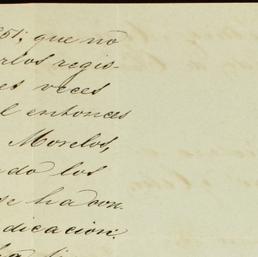 que no
los regis-
es veces
l entonces
Morelos,
do los
se ha con-
dicacion: